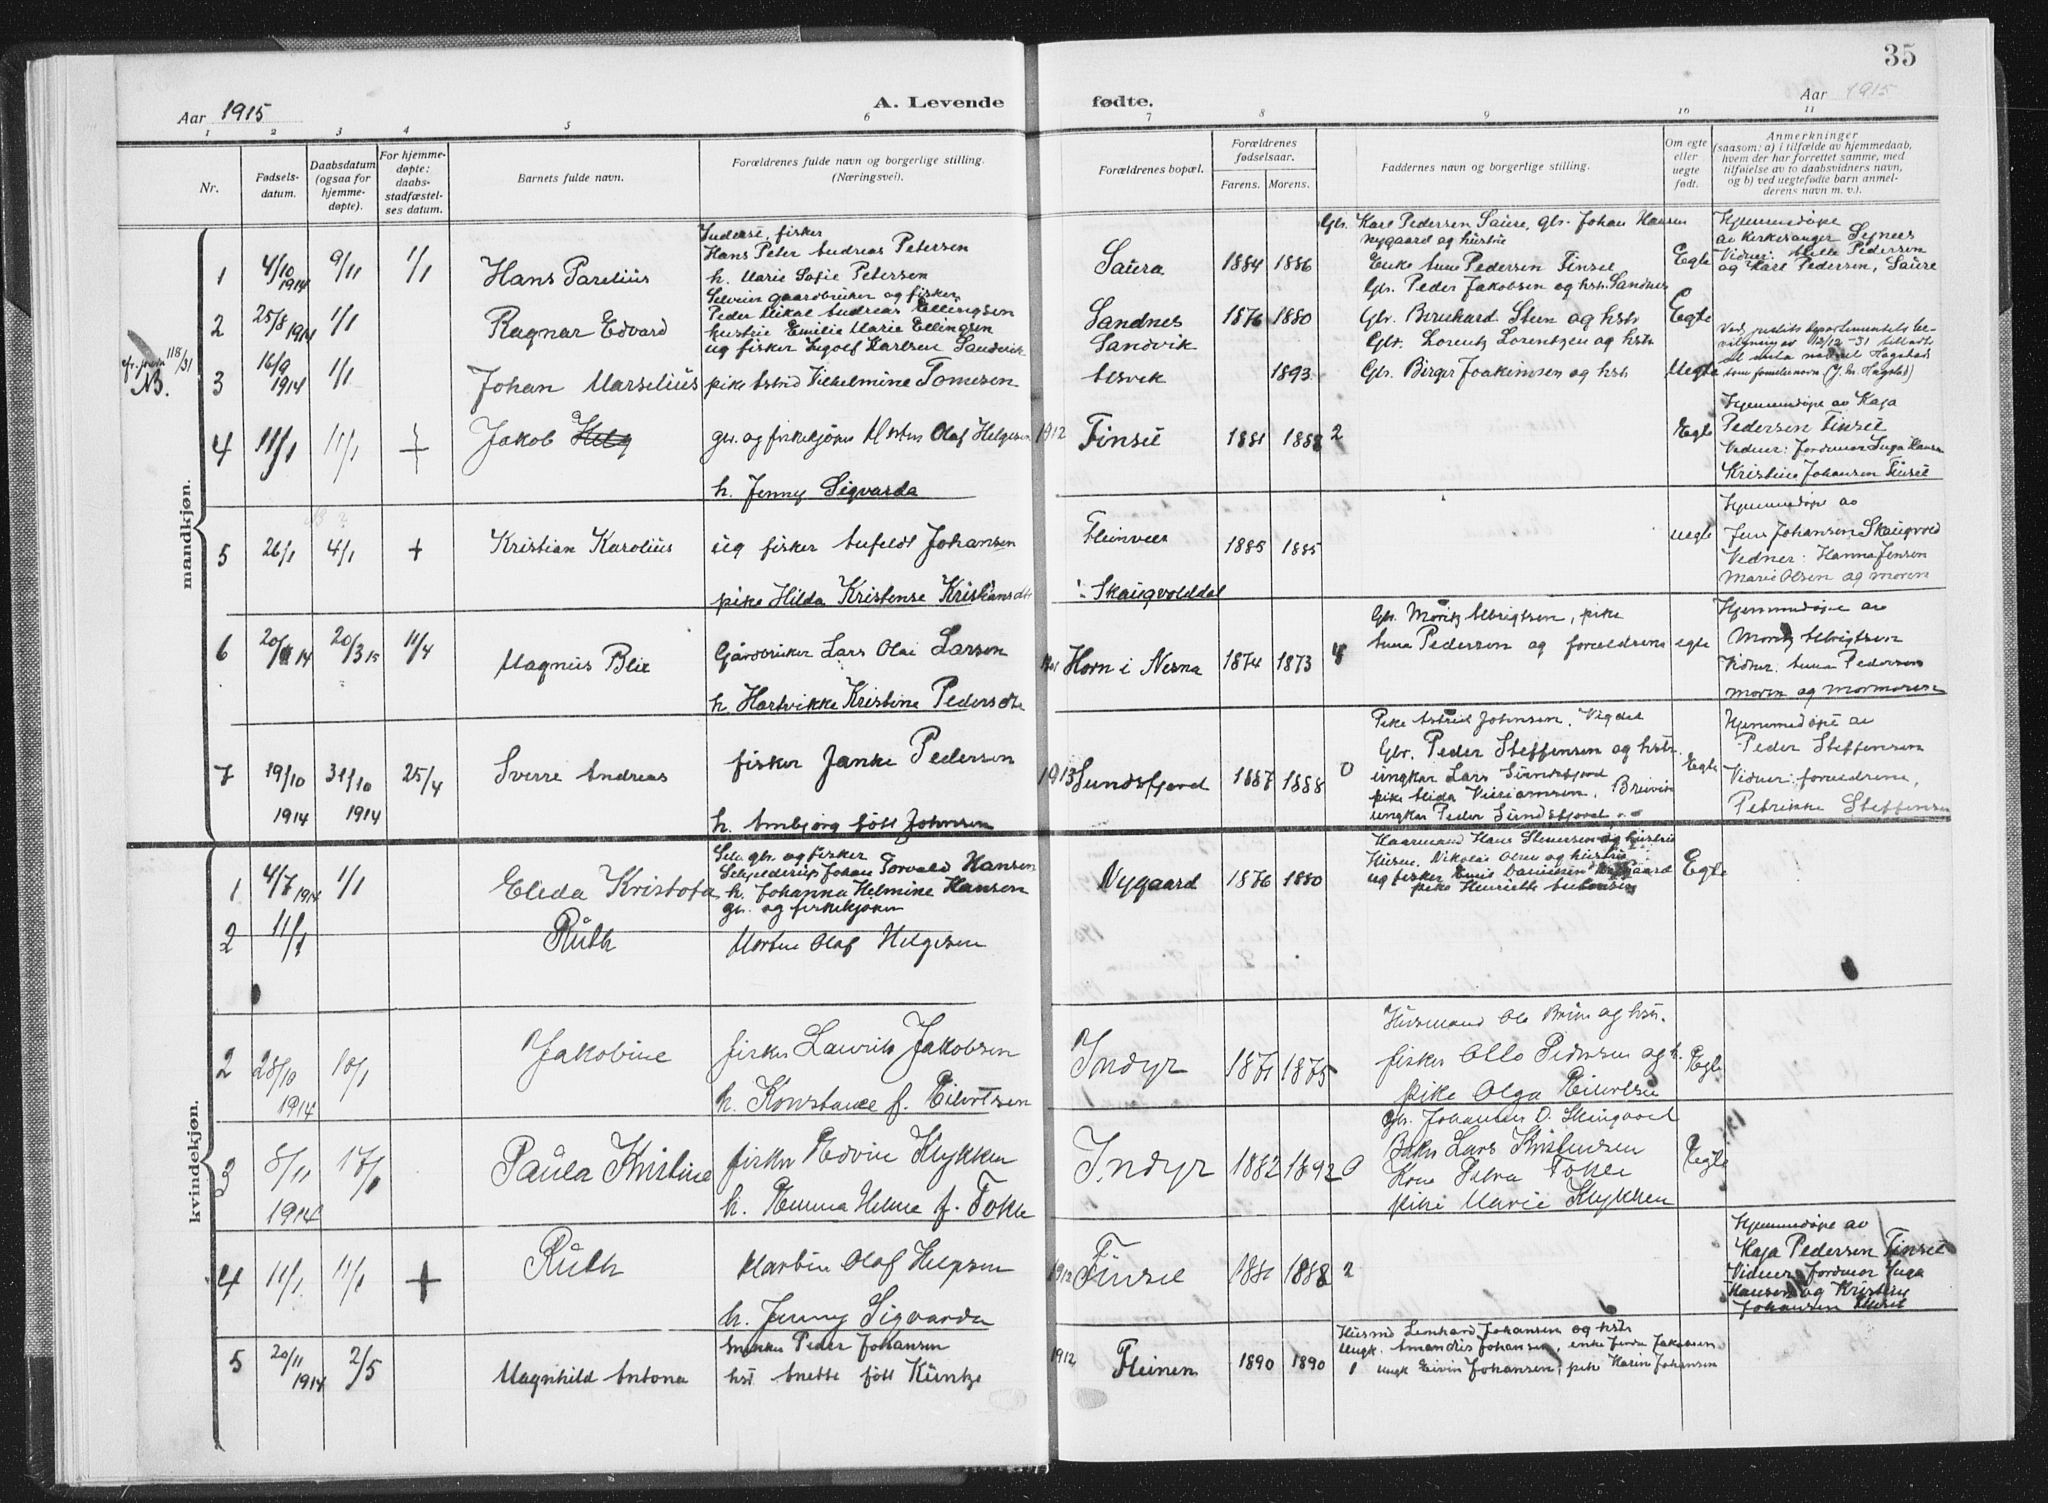 35
Aar 1915
A. Levende
fødte.
Aar 1915
1 2 3 4 5 6 7 8 9 10 11
Nr.
Fødsels-
datum.
Daabsdatum
(ogsaa for
hjemme-
døpte).
For hjemme-
døpte:
daabs-
stadfæstel-
ses datum.
Barnets fulde navn.
Forældrenes fulde navn og borgerlige stilling.
(Næringsvei).
Forældrenes bopæl.
Forældrenes
fødselsaar.
Farens. Morens.
Faddernes navn og borgerlige stilling.
Om egte
eller
uegte
født.
Anmerkninger
(saasom: a) i tilfælde av hjemmedaab,
hvem der har forrettet samme, med
tilføielse av to daabsvidners navn,
og b) ved uegtefødte barn anmel-
derens navn m. v.).
mandkjøn.
1 4/10 1914 9/11 1/1 Hans Parelius
fisker
Hans Peter Andreas Petersen
h. Marie Sofie Petersen
Saura 1884 1886
Glr. Karl Pedersen Saure, glr. Johan Hansen
Nygaard og hustru
Enke Anna Pedersen Finset
Glr. Peder Jakobsen og hstr. Sandnes
Egte
Hjemmedøpt
av kirkesanger Segnes
Vidner: Mette Pedersen
og Karl Pedersen, Saure
2 25/8 1914 1/1 Ragnar Edvard
Selveier gaardbruker og fisker
Peder Mikal Andreas Ellingsen
hustru Emilie Marie Ellingsen
Sandnes 1876 1880
Glr. Bernhard Steen og hstr
Egte
cfr. 118/31
NB.
3 16/9 1914 1/1 Johan Marselius
ug fisker Ingolf Karlsen Sandvik
pike Astrid Vilhelmine Tomesen
Sandvik
Asvik 1893
Glr. Lorentz Lorentzen og hstr
Glr. Birger Joakimsen og hstr
Uegte
Ved justits departementets be-
vilgning av 12/12 -31 tilladt
at anta navnet Hagstad
som familienavn (J. M. Hagstad)
4 11/1 11/1 + Jakob Helg
gr. og fiskekjøper Morten Olaf Helgesen
h. Jenny Sigvarda
1912 Finset 1881 1888 2
Egte
Hjemmedøpt av Kaja
Pedersen Finset
Vidner: Jordmor Inga Hansen
Kristine Johansen Finset
5 26/1 4/1 + Kristian Karolius
ug fisker Anfeldt Johansen
pike Hilda Kristense Kristiansdtr
Fleinvær
: Skaugvolddal
1885 1885
uegte
Hjemmedøpt av
Jens Johansen Skaugvold
Vidner: Hanna Jensen
Marie Olsen og moren
6 20/ 14 20/3 15 11/4 Magnus Blix
Gårdbruker Lars Olai Larsen
h. Hartvikke Kristine Pedersdtr
Horn i Nesna 1874 1873 4
Glr. Moritz Albrigtsen, pike
Anna Pedersen og forældrene
egte
Hjemmedøpt av
Moritz Albrigtsen
Vidner: Anna Pedersen
moren og mormoren
7 19/10 1914 31/10 1914 25/4 Sverre Andreas
fisker Janke Pedersen
h. Annbjørg født Johnsen
1913 Sundsfjord 1887 1888 0
Pike Astrid Johnsen, Vigdel
Gbr. Peder Steffensen og hstr.
ungkar Lars Sundsfjord
pike Alida Breivik
ungkar Peder Sundsfjord
Egte
Hjemmedøpt av
Peder Steffensen
Vidner: forældrene,
Petrikke Steffensen
kvindekjøn.
1 4/7 1914 1/1 Eleda Kristofa
Selv. gbr. og fisker
Johan Torvald Hansen
h. Johanna Helmine Hansen
Nygaard 1876 1880
Haarmand Hans Steensen og hustru
Nikolai Olsen og hustru
ug fisker Enis Danielsen Nygaard
pike Henriette Antonsen
Egte
2 11/1 Ruth
gr. og fiskekjøper
Morten Olaf Helgesen
2 28/10 1914 10/1 Jakobine
fisker Laurits Jakobsen
h. Konstanse f. Eilertsen
Indyr 1871 1875
Husmand Ole Brun og hstr.
fisker Otto Pedersen og h.
pike Olga Eilertsen
Egte
3 8/11 1914 17/1 Paula Kristine
fisker Edvin Klykken
h. Emma Helene f. Fokle
Indyr 1882 1892 0
Gbr. Johannes D. Steingaard
Baker Lars Kristensen
Kone Petra Fokle
pike Marie Klykken
Egte
4 11/1 11/1 + Ruth
Martin Olaf Helgesen
h. Jenny Sigvarda
1912 Finset 1881 1888 2
Hjemmedøpt av
Kaja Pedersen Finset
Vidner Jordmor Inga
Hansen og Kristine
Johansen Finset
5 20/11 1914 2/5 Magnhild Antona
Peder Johansen
hst. Anette født Küntze
1912 Fleinen 1890 1890 1
Husmd Lenhard Johansen og hstr
Ungk. Amandus Johansen, enke Jakobsen
ungk Eivin Johansen, pike Karen Johansen